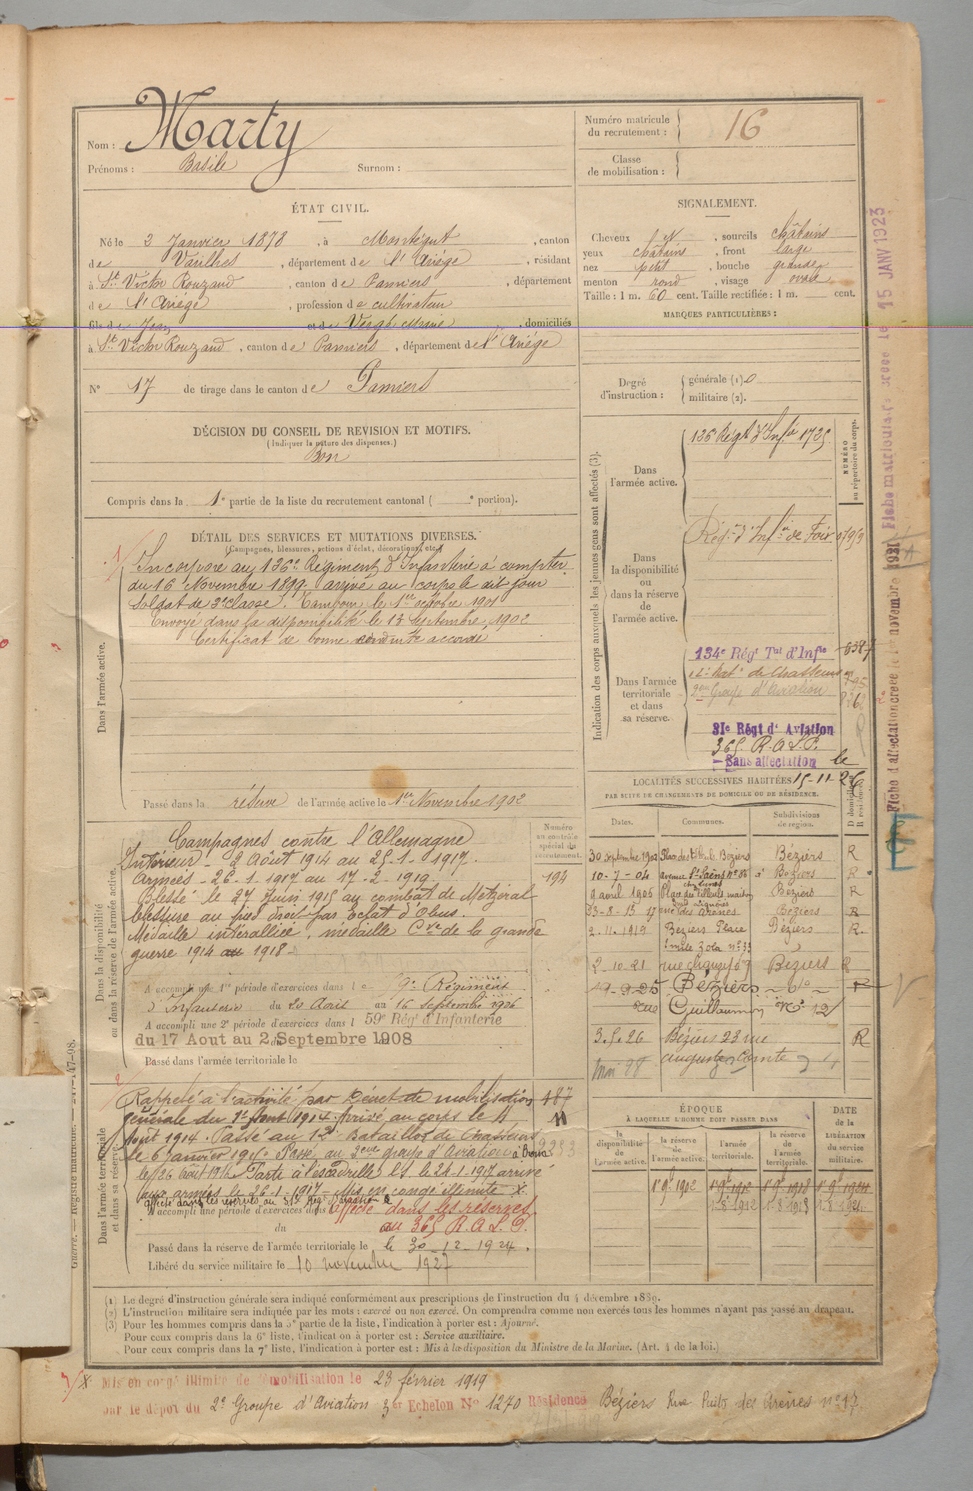 Nom : Marty
Prénoms : Basile Surnom :
Numéro matricule du recrutement : 16
Classe de mobilisation :
ÉTAT CIVIL.
Né le 2 Janvier 1878, à Montégut, canton
de Varilhes, département de l'Ariège, résidant
à St Victor Rouzaud, canton de Pamiers, département
de l'Ariège, profession de cultivateur
fils de Jean et de Vergé Marie, domiciliés
à St Victor Rouzaud, canton de Pamiers, département de l'Ariège
N° 17 de tirage dans le canton de Pamiers
SIGNALEMENT.
Cheveux N, sourcils châtains
yeux châtains, front large
nez petit, bouche grande
menton rond, visage ovale
Taille : 1 m. 60 cent. Taille rectifiée : 1 m. cent.
MARQUES PARTICULIÈRES :
Degré d'instruction : générale (1) 0
militaire (2).
DÉCISION DU CONSEIL DE REVISION ET MOTIFS.
(Indiquer la nature des dispenses.)
Bon
Compris dans la 1e partie de la liste du recrutement cantonal ( e portion).
DÉTAIL DES SERVICES ET MUTATIONS DIVERSES.
(Campagnes, blessures, actions d'éclat, décorations, etc.)
Dans l'armée active.
Incorporé au 136e Régiment d'Infanterie à compter
du 16 Novembre 1899. arrivé au corps le dit jour
Soldat de 2e classe. Tambour le 1er octobre 1901
Envoyé dans la disponibilité le 13 Septembre 1902
Certificat de bonne conduite accordé
Passé dans la réserve de l'armée active le 1er Novembre 1902
Indication des corps auxquels les jeunes gens sont affectés (3).
NUMÉRO au répertoire du corps.
Dans l'armée active.
136 Régt d'Infie 1725
Dans la disponibilité ou dans la réserve de l'armée active.
Régt d'Infie de Foix
Dans l'armée territoriale et dans sa réserve.
134e Régt Tal d'Infie
12e Bat. de Chasseurs
2me Groupe d'Aviation
31e Régt d'Aviation
365 R.A.L.P.
Sans affectation le
15-11-26
Fiche matriculaire créée le 15 JANV 1923
Fiche d'affectation créée le 1er novembre 1921
LOCALITÉS SUCCESSIVES HABITÉES
PAR SUITE DE CHANGEMENTS DE DOMICILE OU DE RÉSIDENCE.
Dates. Communes. Subdivisions de région. D domicile R résidence.
30 septembre 1902 Béziers Béziers R
10-7-04 avenue St Saëns n° 86 Béziers R
9 avril 1906 Place des Tilleuls maison Béziers R
23-8-13 17 rue des Arènes Béziers R
2.11.1919 Béziers Place Emile Zola n° 33 Béziers R
2-10-21 Béziers R
19-9-25 Béziers
rue Guillaumon n° 12
3.5.26 Béziers 23 rue R
Auguste Comte
Dans la disponibilité ou dans la réserve de l'armée active.
Numéro au contrôle spécial du recrutement.
194
Campagnes contre l'Allemagne
Intérieur - 2 Août 1914 au 25-1-1917.
Armées - 26-1-1917 au 17-2-1919
Blessé le 27 Juin 1915 au combat de Metzeral
blessure au pied droit par éclat d'obus.
Médaille interalliée, médaille Cve de la grande
guerre 1914 au 1918
A accompli une 1re période d'exercices dans le 9e Régiment
d'Infanterie du 20 Avril au 16 Septembre 1906
A accompli une 2e période d'exercices dans l 59e Régt d'Infanterie
du 17 Aout au 2 Septembre 1908
Passé dans l'armée territoriale le
Dans l'armée territoriale et dans sa réserve.
Rappelé à l'activité par Décret de mobilisation 487
générale du 1er Aout 1914. arrivé au corps le 11
Août 1914. Passé au 12e Bataillon de Chasseurs
le 6 Janvier 1915. Passé au 2eme groupe d'aviation à Bron
le 26 Août 1916. Parti à l'escadrille le 24-1-1917 arrivé
aux armées le 26-1-1917. Mis en congé illimité X
A accompli une période d'exercices dans
affecté dans les réserves
du au 365 R.A.L.P.
Passé dans la réserve de l'armée territoriale le le 30-12-1924.
Libéré du service militaire le 10 novembre 1927
ÉPOQUE
À LAQUELLE L'HOMME DOIT PASSER DANS
la disponibilité de l'armée active. la réserve de l'armée active. l'armée territoriale. la réserve de l'armée territoriale.
DATE de la LIBÉRATION du service militaire.
1er 9e 1902 1er 9e 1912 1er 9e 1918 1er 9e 1924
1.8.1912 1.8.1918
(1) Le degré d'instruction générale sera indiqué conformément aux prescriptions de l'instruction du 4 décembre 1889.
(2) L'instruction militaire sera indiquée par les mots : exercé ou non exercé. On comprendra comme non exercés tous les hommes n'ayant pas passé au drapeau.
(3) Pour les hommes compris dans la 5e partie de la liste, l'indication à porter est : Ajourné.
Pour ceux compris dans la 6e liste, l'indication à porter est : Service auxiliaire.
Pour ceux compris dans la 7e liste, l'indication à porter est : Mis à la disposition du Ministre de la Marine. (Art. 4 de la loi.)
X Mis en congé illimité de démobilisation le 23 février 1919
par le dépôt du 2e Groupe d'Aviation 3er Echelon N° 1270 Résidence Béziers Rue Puits des Arènes n° 17.